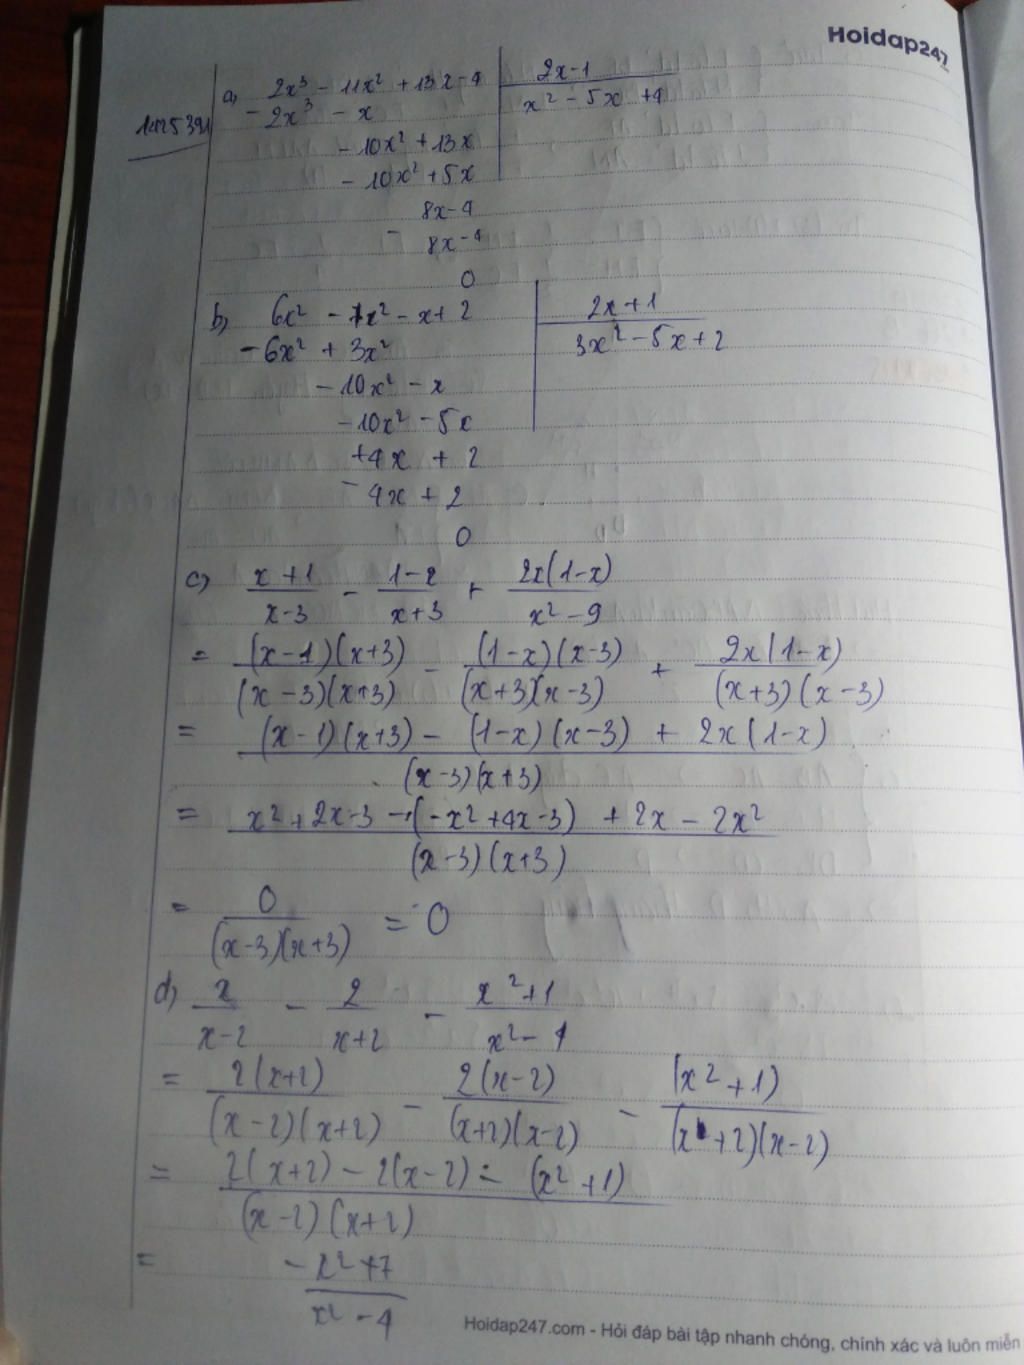 Hoidap247
a) 2x³ - 11x² + 13x - 4 | 2x - 1
- 2x³ - x | x² - 5x + 4
- 10x² + 13x
- 10x² + 5x
8x - 4
- 8x - 4
0
b) 6x² - 7x² - x + 2 | 2x + 1
- 6x² + 3x² | 3x² - 5x + 2
- 10x² - x
- 10x² - 5x
+4x + 2
- 4x + 2
0
c) (x + 1)/(x - 3) - (1 - x)/(x + 3) + 2x(1 - x)/(x² - 9)
= (x - 1)(x + 3)/(x - 3)(x + 3) - (1 - x)(x - 3)/(x + 3)(x - 3) + 2x(1 - x)/(x + 3)(x - 3)
= (x - 1)(x + 3) - (1 - x)(x - 3) + 2x(1 - x)/(x - 3)(x + 3)
= x² + 2x - 3 - (-x² + 4x - 3) + 2x - 2x²/(x - 3)(x + 3)
= 0/(x - 3)(x + 3) = 0
d) x/(x - 2) - 2/(x + 2) - (x² + 1)/(x² - 4)
= 2(x + 2)/(x - 2)(x + 2) - 2(x - 2)/(x + 2)(x - 2) - (x² + 1)/(x + 2)(x - 2)
= 2(x + 2) - 2(x - 2) - (x² + 1)/(x - 2)(x + 2)
= -x² + 7/x² - 4
Hoidap247.com - Hỏi đáp bài tập nhanh chóng, chính xác và luôn miễn